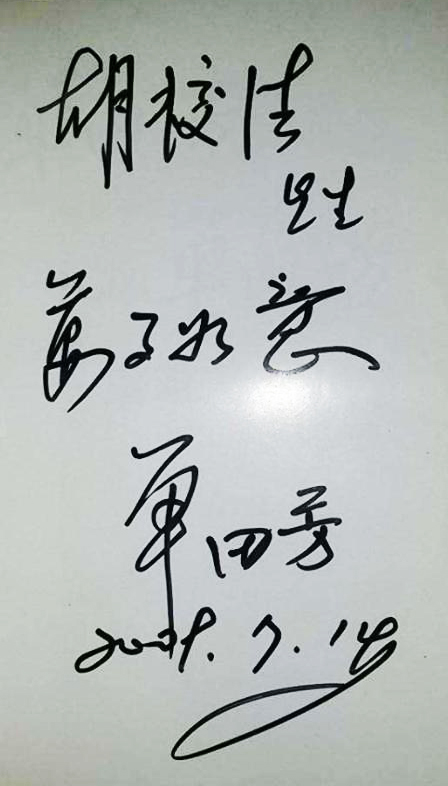 胡校
先生
萬事如意
单田芳
7.14